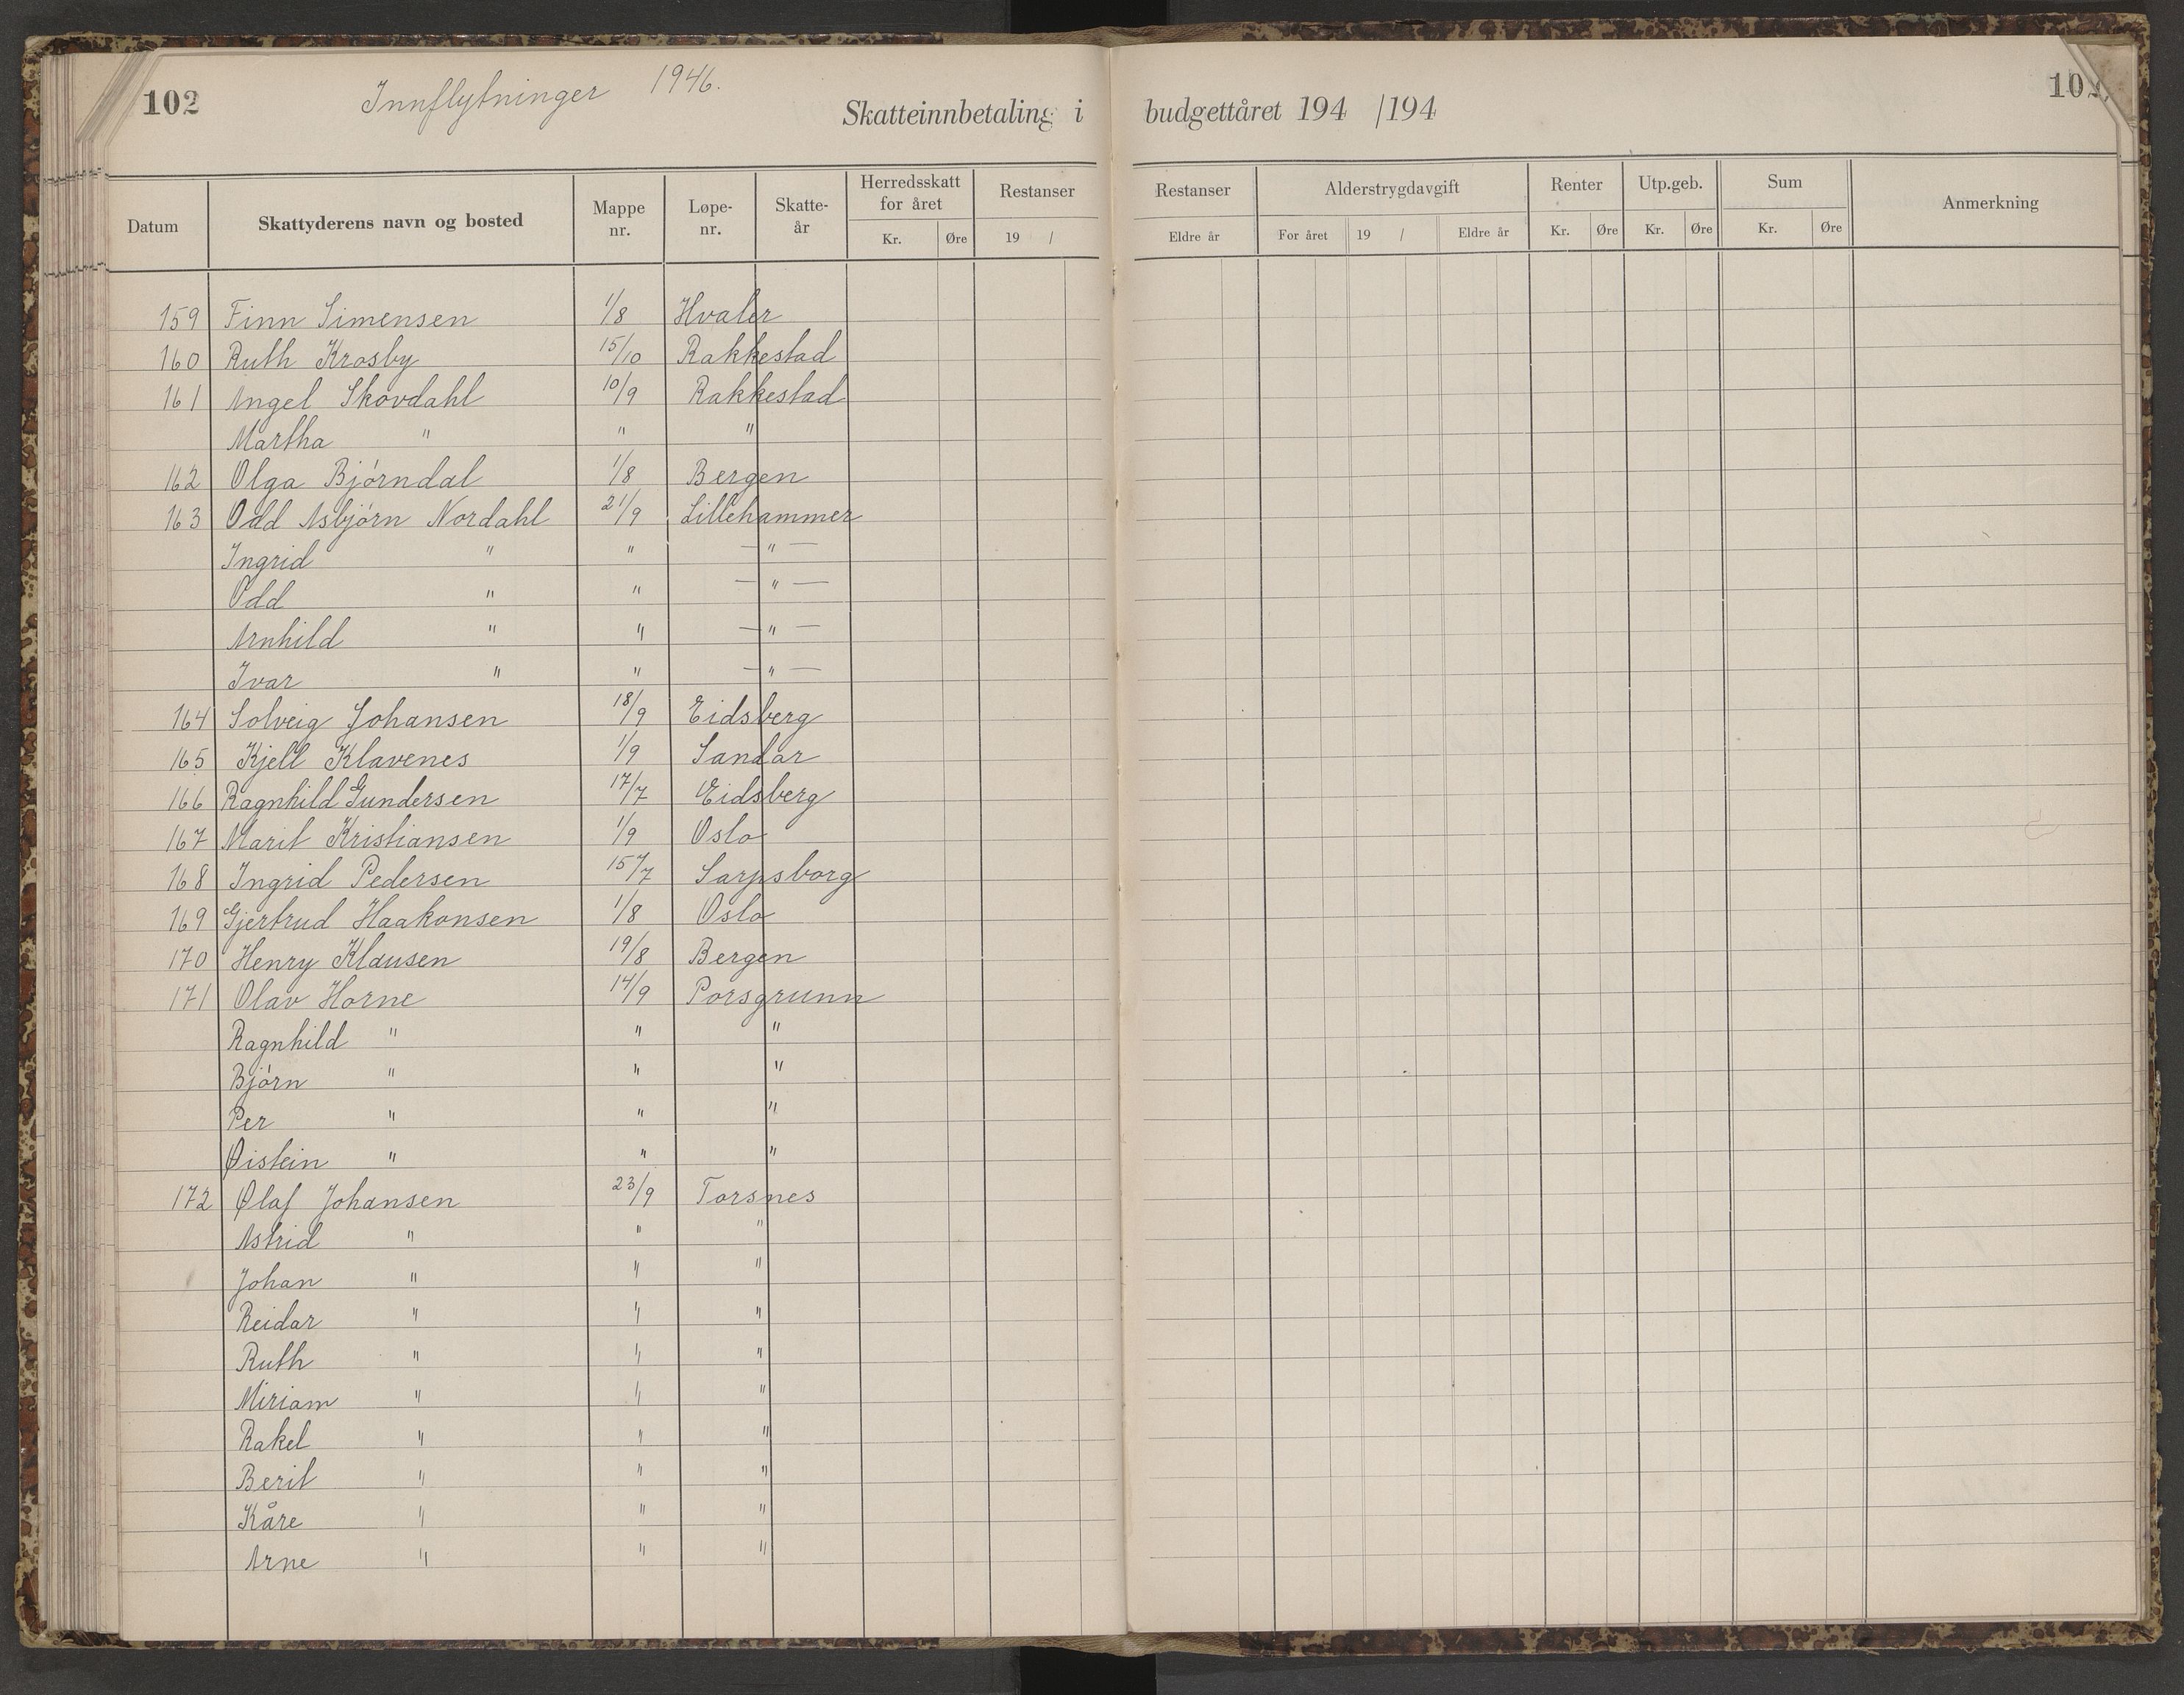 102 Innflytninger 1946.
Skatteinnbetaling i budgettåret 194 /194
Datum Skattyderens navn og bosted Mappe nr. Løpe-nr. Skatte-år Herredsskatt for året Kr. Øre Restanser 19 / Restanser Eldre år Alderstrygdavgift For året 19 / Eldre år Renter Kr. Øre Utp.geb. Kr. Øre Sum Kr. Øre Anmerkning
159 Finn Simensen 1/8 Hvaler
160 Ruth Krosby 15/10 Rakkestad
161 Angel Skovdahl 10/9 Rakkestad
Martha " " "
162 Olga Bjørndal 1/8 Bergen
163 Odd Asbjørn Nordahl 21/9 Lillehammer
Ingrid " " — " —
Odd " " — " —
Arnhild " " — " —
Ivar " " — " —
164 Solveig Johansen 18/9 Eidsberg
165 Kjell Klavenes 1/9 Sandar
166 Ragnhild Gundersen 17/7 Eidsberg
167 Marit Kristiansen 1/9 Oslo
168 Ingrid Pedersen 15/7 Sarpsborg
169 Gjertrud Haakonsen 1/8 Oslo
170 Henry Klausen 19/8 Bergen
171 Olav Horne 14/9 Porsgrunn
Ragnhild " " "
Bjørn " " "
Per " " "
Øistein " " "
172 Olaf Johansen 23/9 Torsnes
Astrid " " "
Johan " " "
Reidar " " "
Ruth " " "
Miriam " " "
Rakel " " "
Berit " " "
Kåre " " "
Arne " " "